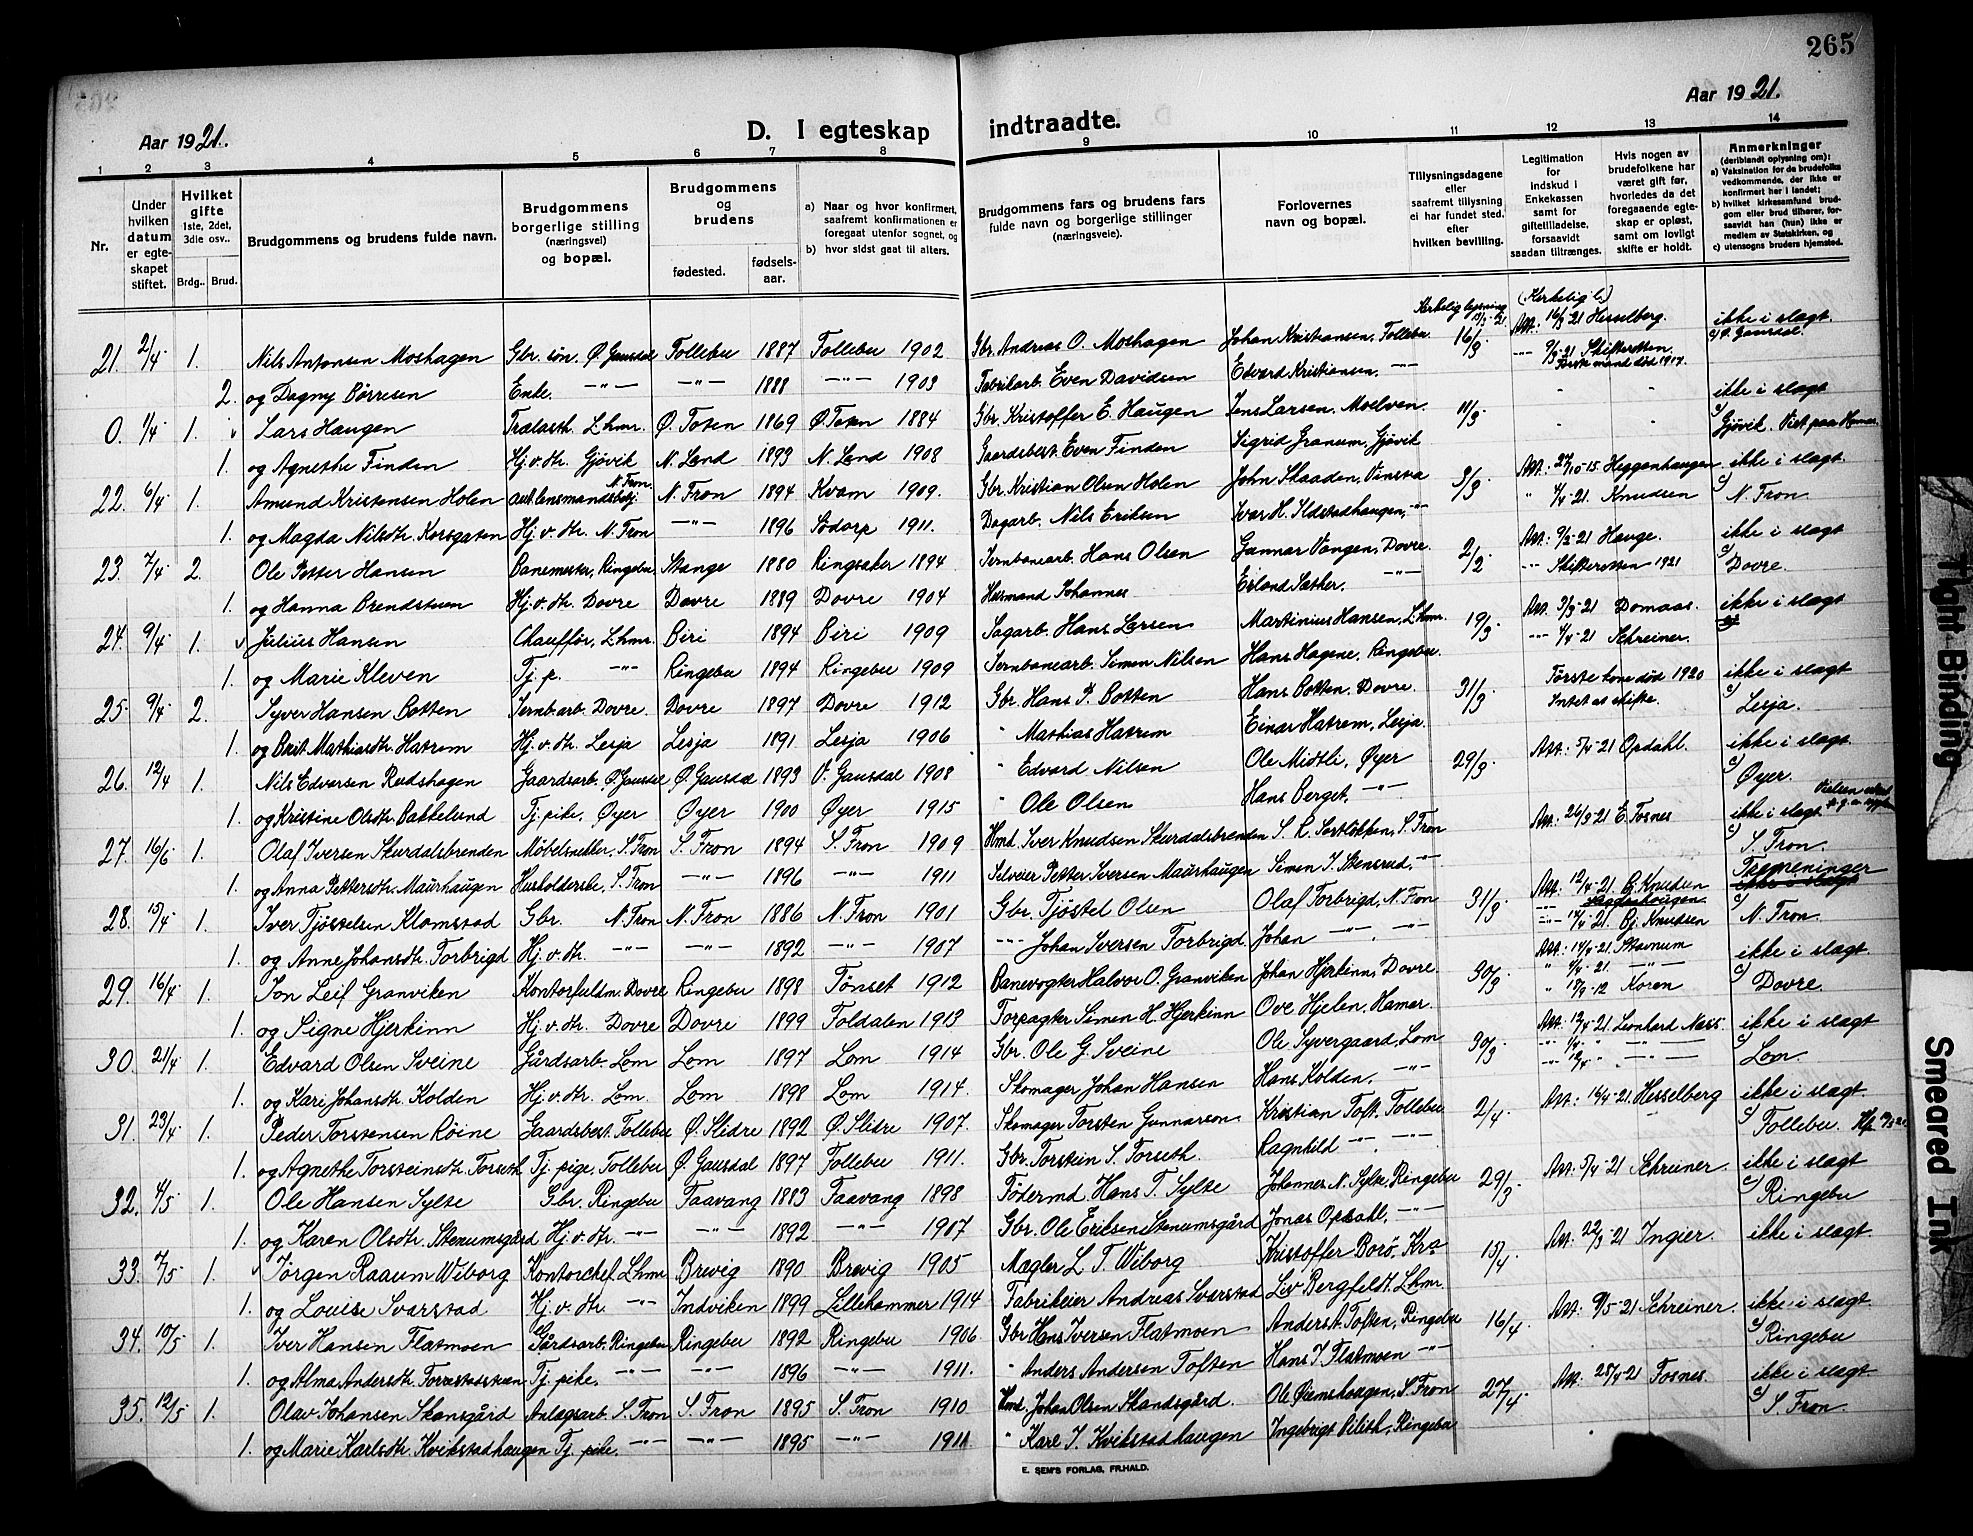 265
Aar 1921.
D. I egteskap
indtraadte.
Aar 1921.
1 2 3 4 5 6 7 8 9 10 11 12 13 14
Nr.
Under hvilken datum er egte-skapet stiftet.
Hvilket gifte 1ste, 2det, 3die osv..
Brdg.. Brud.
Brudgommens og brudens fulde navn.
Brudgommens borgerlige stilling (næringsvei) og bopæl.
Brudgommens og brudens
fødested.
fødsels-aar.
a) Naar og hvor konfirmert, saafremt konfirmationen er foregaat utenfor sognet, og
b) hvor sidst gaat til alters.
Brudgommens fars og brudens fars fulde navn og borgerlige stillinger (næringsveie).
Forlovernes navn og bopæl.
Tillysningsdagene eller saafremt tillysning ei har fundet sted. efter hvilken bevilling.
Legitimation for indskud i Enkekassen samt for giftetilladelse, forsaavidt saadan tiltrænges.
Hvis nogen av brudefolkene har været gift før, hvorledes da det foregaaende egte-skap er opløst, samt om lovligt skifte er holdt.
Anmerkninger (deriblandt oplysning om):
a) Vaksination for de brudefolks vedkommende, der ikke er konfirmert her i landet;
b) hvilket kirkesamfund brud-gom eller brud tilhører, for-saavidt han (hun) ikke er medlem av Statskirken, og
c) utensogns bruders hjemsted.
21. 2/4 1. Nils Antonsen Moshagen Gbr. søn. Ø. Gausdal Follebu 1887 Follebu 1902 Gbr. Andreas O. Moshagen Johan Kristiansen, Follebu 16/3 Att: 16/3-21 Hesselberg. ikke i slægt
2. og Dagny Børresen Enke. —"— —"— 1888 —"— 1903 Fabrikarb. Even Davidsen Edvard Kristiansen. —"— Første mand død 1917.
0. 1/4 1. Lars Haugen Trælasth. Lhmr. Ø. Toten 1869 Ø. Toten 1884 Gbr. Kristoffer E. Haugen Jens Larsen, Moelven. 11/3 ikke i slægt
1. og Agnethe Finden Hj.v.dtr. Gjøvik N. Land 1893 N. Land 1908 Gaardsbest. Even Finden Sigrid Granum, Gjøvik Gjøvik. Viet paa Hamar
22. 6/4 1. Amund Kristensen Holen ass. lensmandsbetj. N. Fron N. Fron 1894 Kvam 1909. Gbr. Kristian Olsen Holen John Skaaden, Vinstra 3/3 Att: 27/10-15 Heggenhaugen ikke i slægt.
1. og Magda Nilsdtr. Korsgaten Hj.v.dtr. N. Fron —"— 1896 Sødorp 1911. Dagarb. Nils Eriksen Ivar H. Ildstadhaugen, —"— " 4/4-21. Knudsen N. Fron
23. 7/4 2. Ole Petter Hansen Banemester, Ringebu Stange 1880 Ringsaker 1894 Jernbanearb. Hans Olsen Gunnar Vangen, Dovre. 2/2 Att: 9/2-21 Hauge. ikke i slægt
1. og Hanna Brendstuen Hj.v.dtr. Dovre Dovre 1889 Dovre 1904 Husmand Johannes Erland Sæther. —"— --- Skifteretten 1921 Dovre.
24. 9/4 1. Julius Hansen Chauffør, Lhmr. Biri 1894 Biri 1909 Sagarb. Hans Larsen Martinius Hansen, Lhmr. 19/3 Att. 3/3-21 Domaas. ikke i slægt
1. og Marie Kleven Tj.p. —"— Ringebu 1894 Ringebu 1909 Jernbanearb. Simen Nilsen Hans Hagene, Ringebu. --- 4/4-21 Schreiner.
25. 9/4 2. Syver Hansen Botten Jernb.arb. Dovre. Dovre 1897 Dovre 1912 Gbr. Hans P. Botten Hans Botten, Dovre. 31/3 Første kone død 1920 ikke i slægt
1. og Brit Mathiasdtr. Hatrem Hj.v.dtr. Lesja Lesja 1891 Lesja 1906 " Mathias Hatrem Einar Hatrem, Lesja. Intet at skifte. Lesja.
26. 12/4 1. Nils Edvartsen Rudshagen Gaardsarb. Ø. Gausdal Ø. Gausdal 1893 V. Gausdal 1908 " Edvard Nilsen Ole Midtli, Øyer 29/3 Att: 5/4-21 Opdahl. ikke i slægt.
1. og Kristine Olsdtr. Bakkelund Tj. pike, Øyer Øyer 1900 Øyer 1915 " Ole Olsen Hans Berget, —"— Øyer.
27. 16/6 1. Olaf Iversen Skurdalsbrenden Møbelsnekker, S. Fron S. Fron 1894 S. Fron 1909 Hmd. Iver Knudsen Skurdalsbrenden Att: 26/3-21 E. Fosnes ikke i slægt
1. og Anna Pettersdtr. Maurhaugen Husholderske, S. Fron —"— 1896 —"— 1911 Selveier Petter Iversen Maurhaugen Simen I. Stensrud, —"— S. Fron.
28. 15/4 1. Iver Tjøstelsen Klomstad Gbr. N. Fron N. Fron 1886 N. Fron 1901 Gbr. Tjøstel Olsen Olaf Torbrigd, N. Fron 31/3 Att: 12/4-21. Bj. Knudsen Tremeninger
1. og Anne Johansdtr. Torbrigd Hj.v.dtr. —"— —"— 1892 —"— 1907 --- Johan Iversen Torbrigd Johan —"— —"— --- 14/4-21. Bj. Knudsen N. Fron
29. 16/4 1. Jon Leif Granviken Kontorfuldm. Dovre Ringebu 1898 Tønset 1912 Banevogter Halvor O. Granviken Johan Hjerkinn, Dovre 30/3 Att: 14/4-21 Stavnum ikke i slægt.
1. og Signe Hjerkinn Hj.v.dtr. Dovre Dovre 1899 Foldalen 1913 Forpagter Simen H. Hjerkinn Ove Hjelen, Hamar. " 18/9-12 Koren Dovre
30. 21/4 1. Edvard Olsen Sveine Gårdsarb. Lom Lom 1897 Lom 1914 Gbr. Ole G. Sveine Ole Syvergaard, Lom 30/3 Att: 13/4-21. Leonhard Næss. ikke i slægt
1. og Kari Johansdtr. Kolden Hj.v.dtr. Lom. Lom 1898 Lom 1914. Skomager Johan Hansen Hans Kolden, —"— Lom.
31. 23/4 1. Peder Torstensen Røine Gaardsbest. Follebu Ø. Slidre 1892 Ø. Slidre 1907. Skomager Torsten Gunnarson Kristian Toft, Follebu 2/4 Att: 16/4-21. Hesselberg ikke i slægt.
1. og Agnethe Torsteinsdtr. Forseth Tj. pige, Follebu Ø. Gausdal 1897 Follebu 1911. Gbr. Torstein S. Forseth. Ragnhild —"— —"— Follebu.
32. 4/5 1. Ole Hansen Sylte Gbr. Ringebu Faavang 1883 Faavang 1898 Fødermd. Hans T. Sylte Johannes N. Sylte, Ringebu 29/3 Att: 5/4-21 Schreiner. ikke i slægt
1. og Karen Olsdtr. Stenumsgård Hj.v.dtr. —"— —"— 1892 —"— 1907 Gbr. Ole Eriksen Stenumsgård Jonas Opdahl, —"— Ringebu
33. 7/5 1. Jørgen Raaum Wiborg Kontorchef Lhmr Brevig 1890 Brevig 1905 Mægler L. T. Wiborg Kristoffer Borø, Kra 15/4 Att: 22/3-21 Ingier. ikke i slægt
1. og Louise Svarstad Hj.v.dtr. —"— Indviken 1899 Lillehammer 1914 Fabrikeier Andreas Svarstad Liv Bergfeldt, Lhmr.
34. 10/5 1. Iver Hansen Flatmoen Gårdsarb. Ringebu Ringebu 1892 Ringebu 1906. Gbr. Hans Iversen Flatmoen Anders A. Toften, Ringebu 16/4. Att: 9/5-21 Schreiner. ikke i slægt.
1. og Alma Andersdtr. Tj. pike. —"— —"— 1896 —"— 1911. " Anders Andersen Toften Hans I. Flatmoen —"— Ringebu
35. 12/5 1. Olav Johansen Skansgård Anlægsarb. S. Fron S. Fron 1895 S. Fron 1910 Hmd. Johan Olsen Skandsgård. S. Fron 27/4 Att: 28/4-21 Fosnes. ikke i slægt
1. og Marie Karlsdtr. Kvikstadhaugen Tj. pike. —"— —"— 1895 —"— 1911 " Karl I. Kvikstadhaugen Ringebu S. Fron.
E. SEM'S FORLAG, FR.HALD.
Tight Binding
Smeared Ink